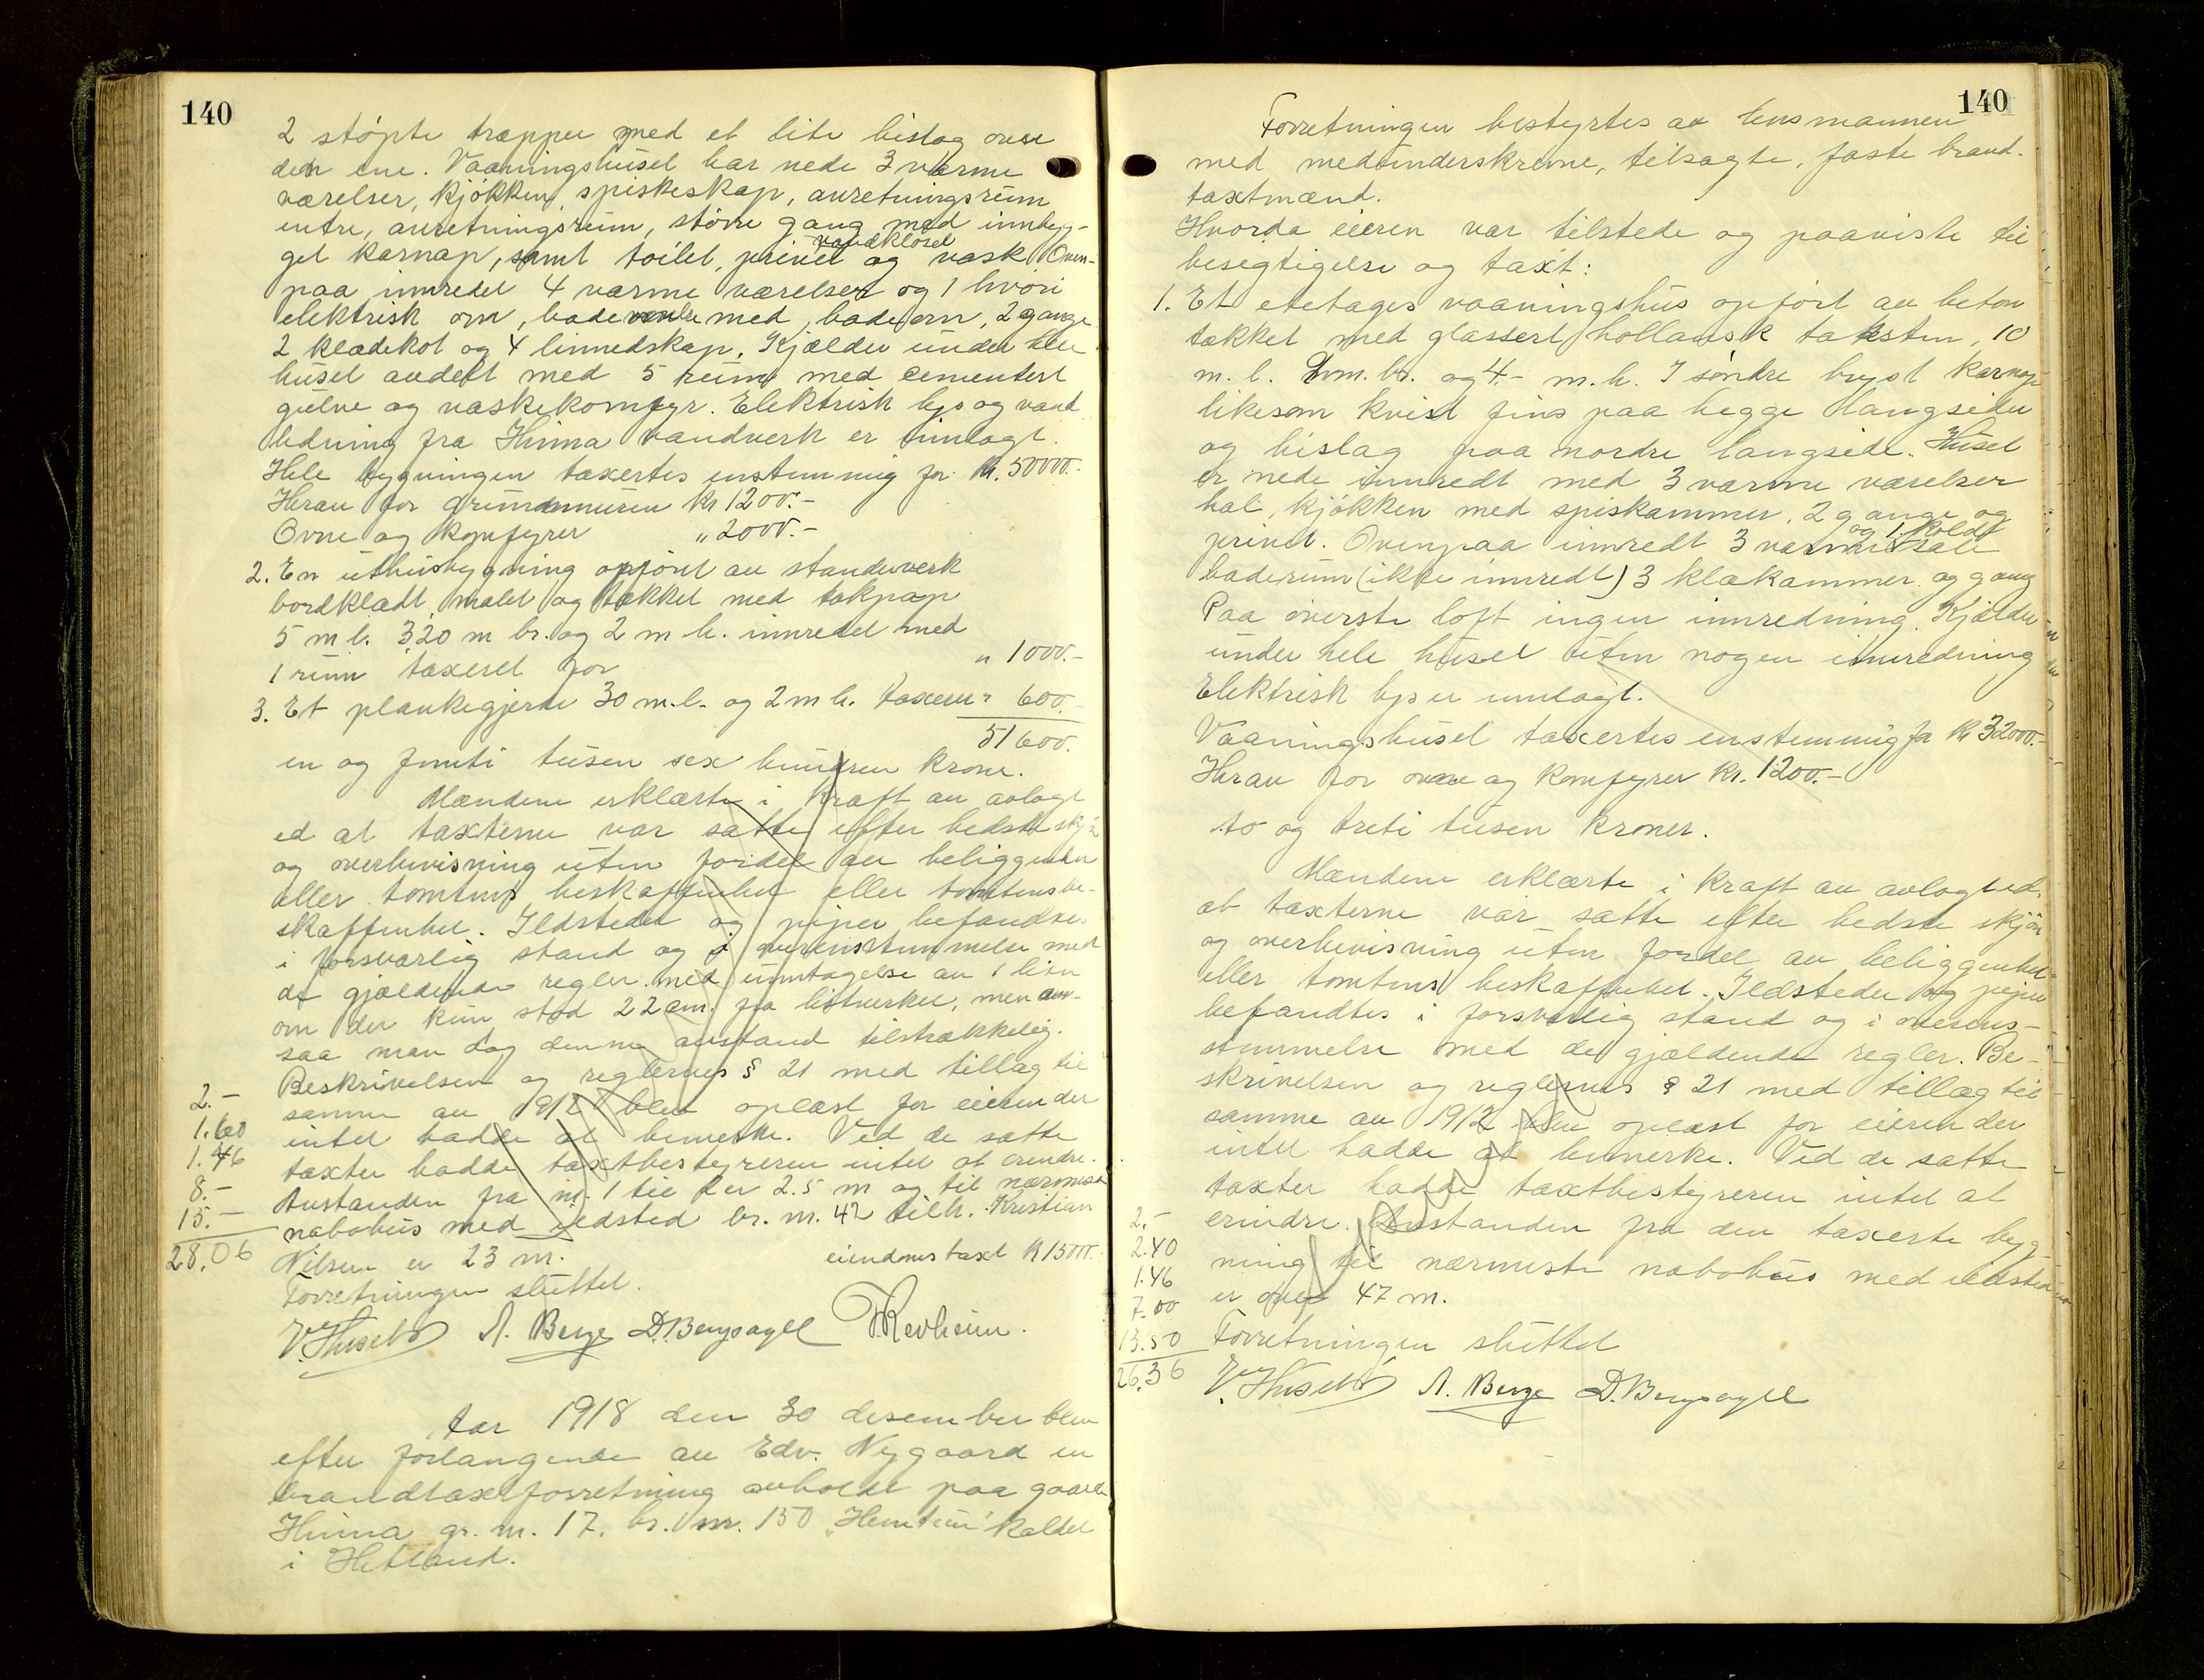 140
2 støpte trapper med et lite bislag over
den ene. Vaaningshuset har nede 3 varme
værelser, kjøkken, spiskeskap, anretningsrum
entre, anretningsrum, større gang med innbyg-
get karnap, samt toilet, privet og vask. Oven-
vandkloset
paa innredet 4 varme værelser og 1 hvori
elektrisk ovn, bade med badeovn, 2 gange
2 klædekot og 4 linnedskap. Kjælder under hele
huset avdelt med 5 rum med cementert
gulve og vaskekomfyr. Elektrisk lys og vand
ledning fra Hinna vandverk er innlagt.
Hele bygningen taxertes enstemmig for Kr. 50000.-
Herav for grundmuren Kr 1200.-
Ovne og komfyrer " 2000.-
2. En uthusbygning opført av standerverk
bordklædt, malet og tækket med takpap
5 m l. 3,20 m br. og 2 m h. innredet med
1 rum taxeret for " 1000.-
3. Et plankegjerde 30 m.l. og 2 m h. taxeres " 600.-
51600.
en og femti tusen sex hundren krone.
Mændene erklærte i kraft av avlagt
ed at taxterne var satte efter bedste skjø
og overbevisning uten fordel av beliggenhet
eller tomtens beskaffenhet eller tomtens be-
skaffenhet. Ildstedet og piper befandtes
i forsvarlig stand og i overensstemmelse med
de gjældende regler med unntagelse av 1 liten
ovn der kun stod 22 cm. fra listverket, men an-
saa man dog denne avstand tilstrækkelig.
Beskrivelsen og reglernes § 21 med tillæg til
samme av 1912 blev oplæst for eieren der
intet hadde at bemerke. Ved de satte
taxter hadde taxtbestyreren intet at erindre.
Avstanden fra nr. 1 til 2 er 2.5 m og til nærmeste
nabohus med ildsted br. nr. 42 tilh. Kristian
Nilsen er 23 m. eiendomstaxt Kr 15000.-
Forretningen sluttet.
2.-
1.60
1.46
8.-
15.-
28.06
V. Husebø A. Berge D. Bergsagel T. Revheim.
Aar 1918 den 30 desember blev
efter forlangende av Edv. Nygaard en
brandtaxtforretning avholdt paa gaarden
Hinna gr. nr. 17, br. nr. 150 "Hemtun" kaldet
i Hetland.
140
Forretningen bestyrtes av lensmannen
med medunderskrevne, tilsagte, faste brand-
taxtmænd.
Hvorda eieren var tilstede og paaviste til
besegtigelse og taxt:
1. Et etetages vaaningshus opført av beton
tækket med glassert hollansk taksten, 10
m. l. 9 m. br. og 4.- m. h. I søndre bryst karnap
likesom kvist fins paa begge langsider
og bislag paa nordre langside. Huset
er nede innredt med 3 varme værelser
hal, kjøkken med spiskammer, 2 gange og
privet. Ovenpaa innredt 3 varme og 1 koldt sale
baderum (ikke innredt) 3 klækammer og gang
Paa øverste loft ingen innredning. Kjælder
under hele huset uten nogen innredning
Elektrisk lys er innlagt.
Vaaningshuset taxertes enstemmig for Kr 32000.-
Herav for ovne og komfyrer Kr. 1200.-
to og treti tusen kroner.
Mændene erklærte i kraft av avlagt ed
at taxterne var satte efter bedste skjøn
og overbevisning uten fordel av beliggenhet
eller tomtens beskaffenhet. Ildsteder og piper
befandtes i forsvarlig stand og i overens-
stemmelse med de gjældende regler. Be-
skrivelsen og reglernes § 21 med tillæg til
samme av 1912 blev oplæst for eieren der
intet hadde at bemerke. Ved de satte
taxter hadde taxtbestyreren intet at
erindre. Avstanden fra den taxerte byg-
ning til nærmeste nabohus med ildsted
er over 47 m.
Forretningen sluttet
2.-
2.40
1.46
7.00
13.50
26.36
V. Husebø A. Berge D. Bergsagel